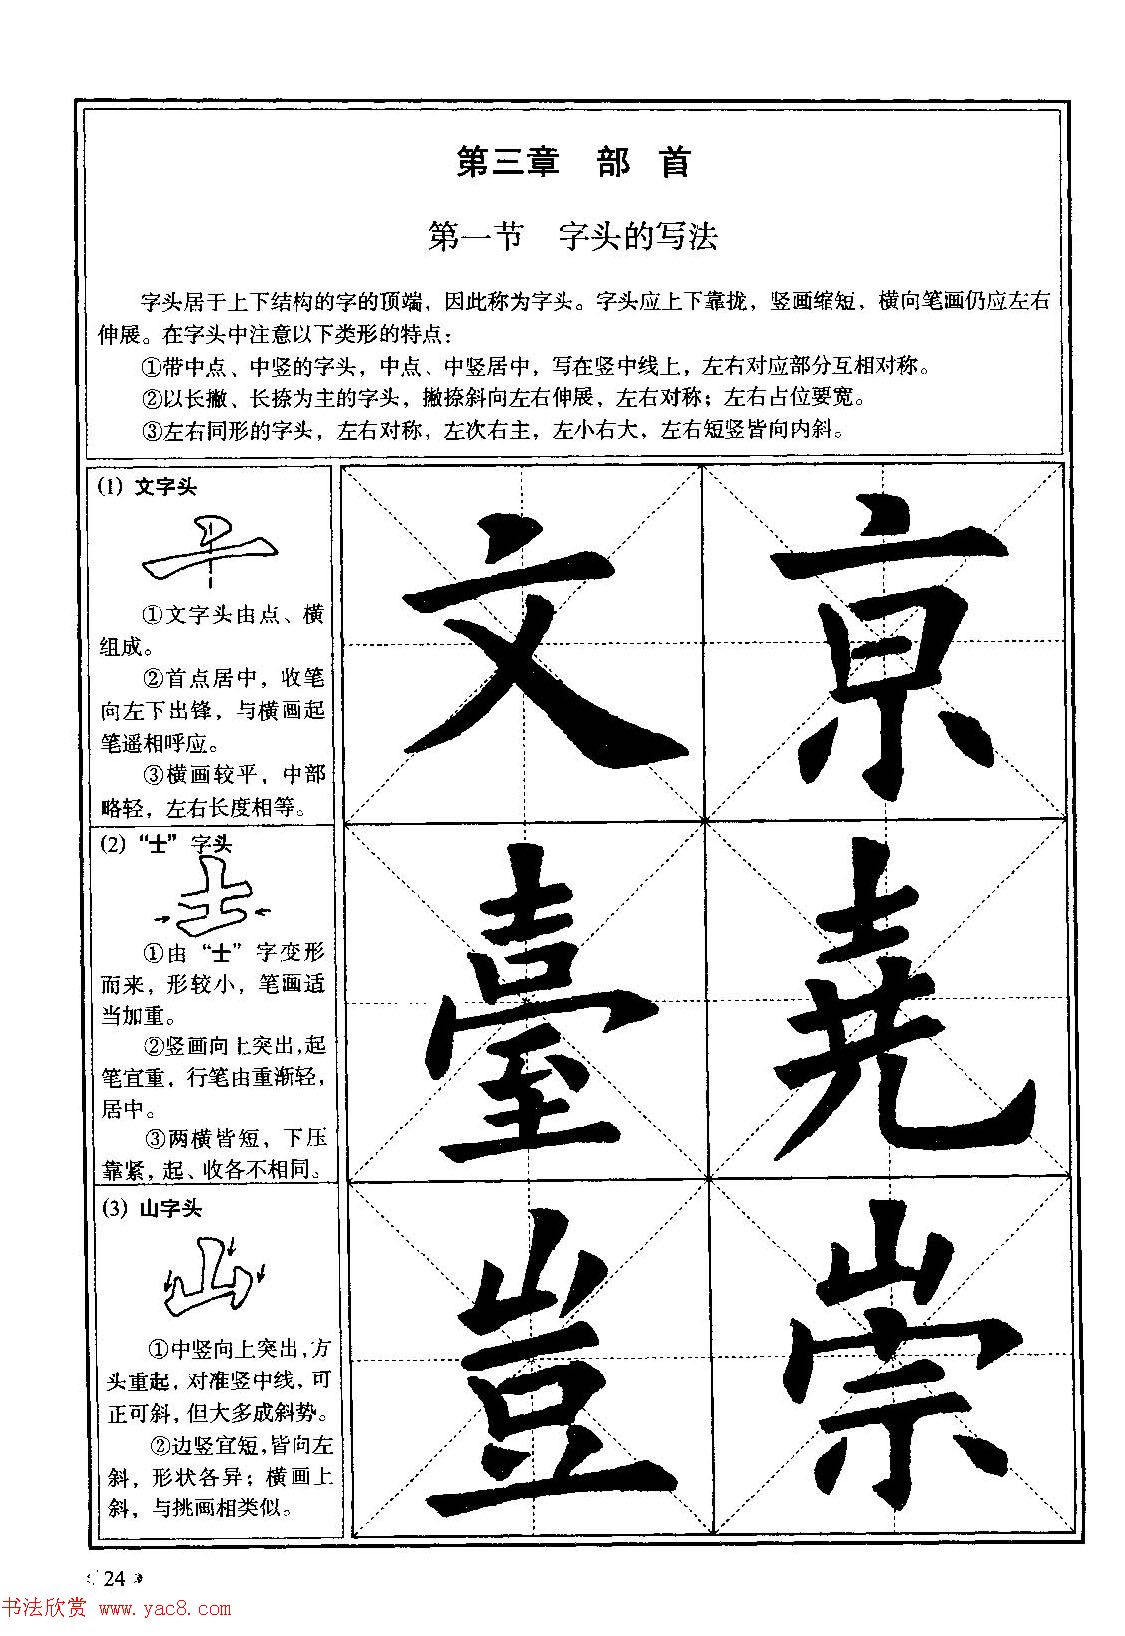 第三章 部 首
第一节 字头的写法
字头居于上下结构的字的顶端，因此称为字头。字头应上下靠拢，竖画缩短，横向笔画仍应左右
伸展。在字头中注意以下类形的特点：
①带中点、中竖的字头，中点、中竖居中，写在竖中线上，左右对应部分互相对称。
②以长撇、长捺为主的字头，撇捺斜向左右伸展，左右对称；左右占位要宽。
③左右同形的字头，左右对称，左次右主，左小右大，左右短竖皆向内斜。
(1) 文字头
①文字头由点、横
组成。
②首点居中，收笔
向左下出锋，与横画起
笔遥相呼应。
③横画较平，中部
略轻，左右长度相等。
文 京
(2) “士”字头
①由“士”字变形
而来，形较小，笔画适
当加重。
②竖画向上突出，起
笔宜重，行笔由重渐轻，
居中。
③两横皆短，下压
靠紧，起、收各不相同。
臺 堯
(3) 山字头
①中竖向上突出，方
头重起，对准竖中线，可
正可斜，但大多成斜势。
②边竖宜短，皆向左
斜，形状各异；横画上
斜，与挑画相类似。
豈 崇
24
书法欣赏 www.yac8.com